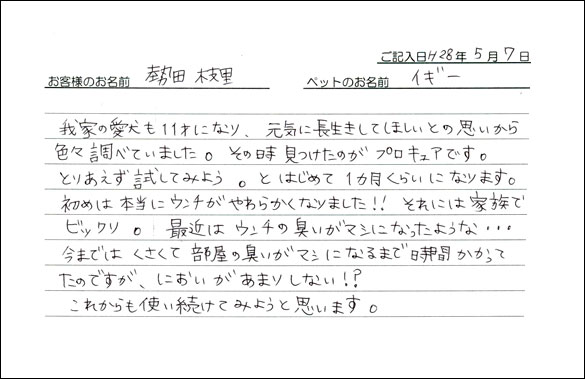 ご記入日 H28年 5月 7日
お客様のお名前 勢田 枝里 ペットのお名前 イギー
我家の愛犬も11才になり、元気に長生きしてほしいとの思いから
色々調べていました。その時見つけたのがプロキュアです。
とりあえず試してみよう。とはじめて1カ月くらいになります。
初めは本当にウンチがやわらかくなりました!! それには家族で
ビックリ。最近はウンチの臭いがマシになったような・・・
今まではくさくて部屋の臭いがマシになるまで時間かかって
たのですが、においがあまりしない!?
これからも使い続けてみようと思います。